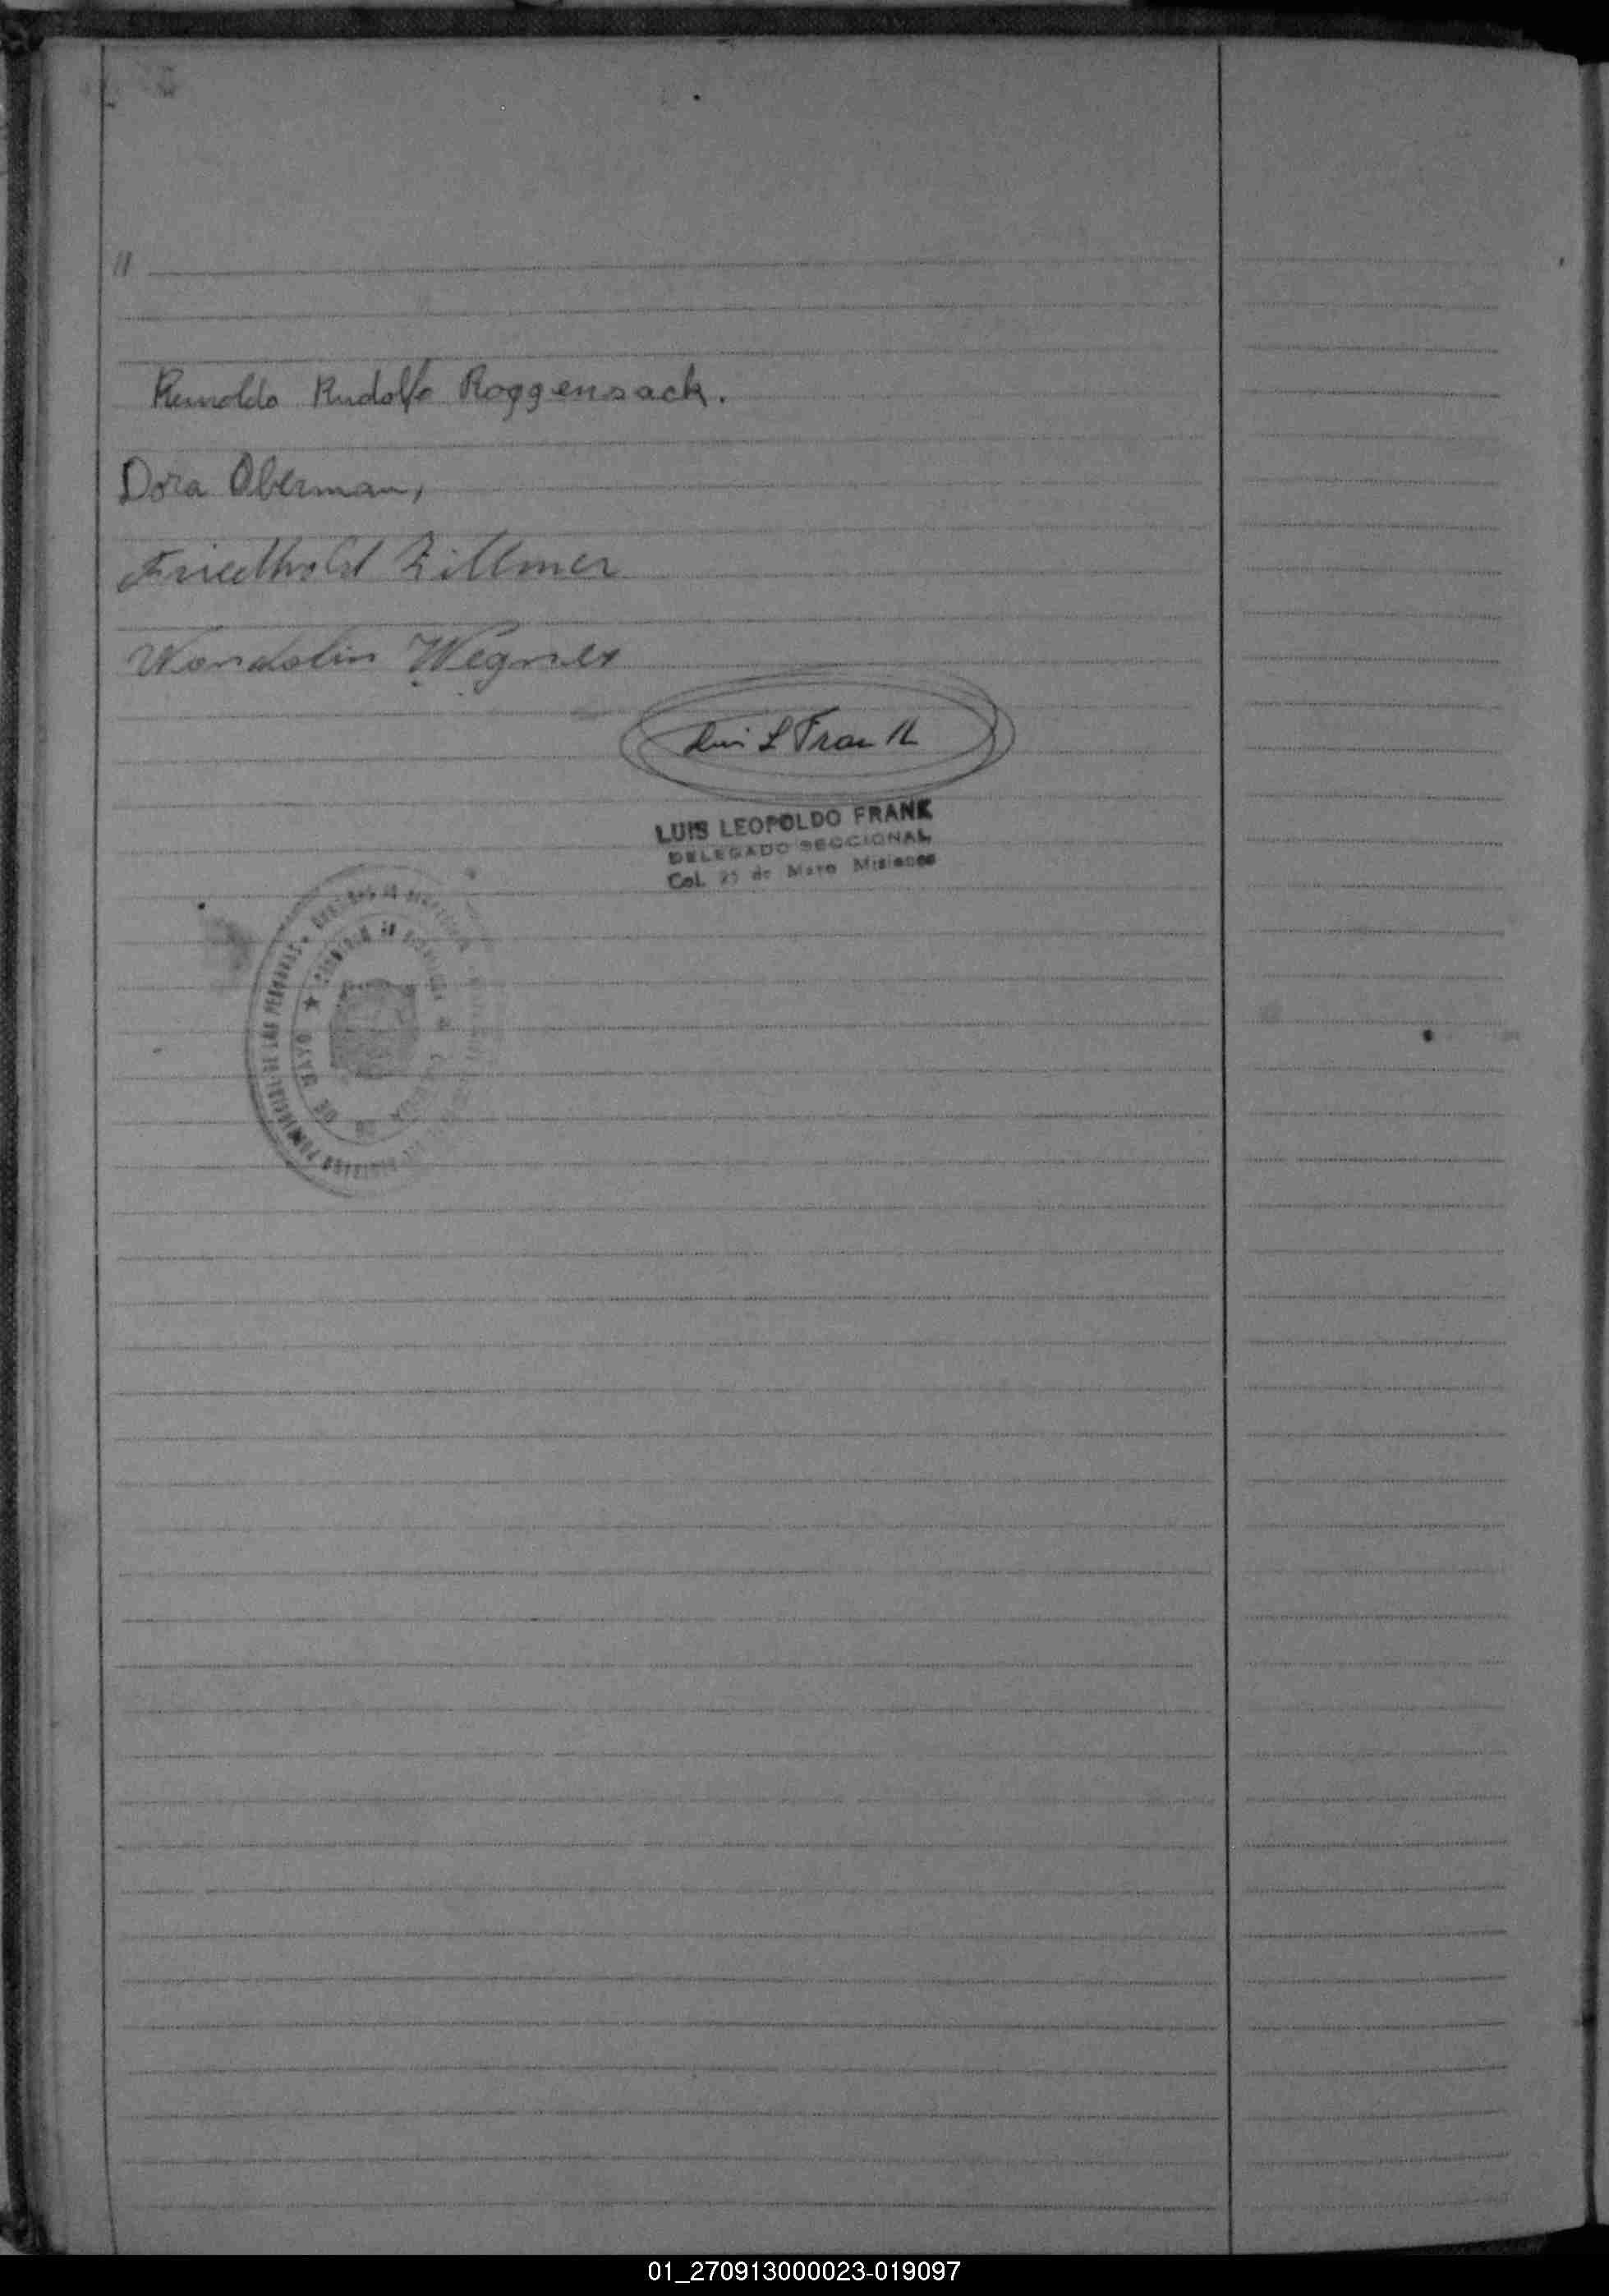 "
Reinoldo Rudolfo Roggensack.
Dora Oberman,
Friedhold Zillmer
Wendolin Wegner
Luis L Frank
LUIS LEOPOLDO FRANK
DELEGADO SECCIONAL
Col. 25 de Mayo Misiones
PROVINCIAL DE LAS PERSONAS
DE MAYO ★
01_270913000023-019097